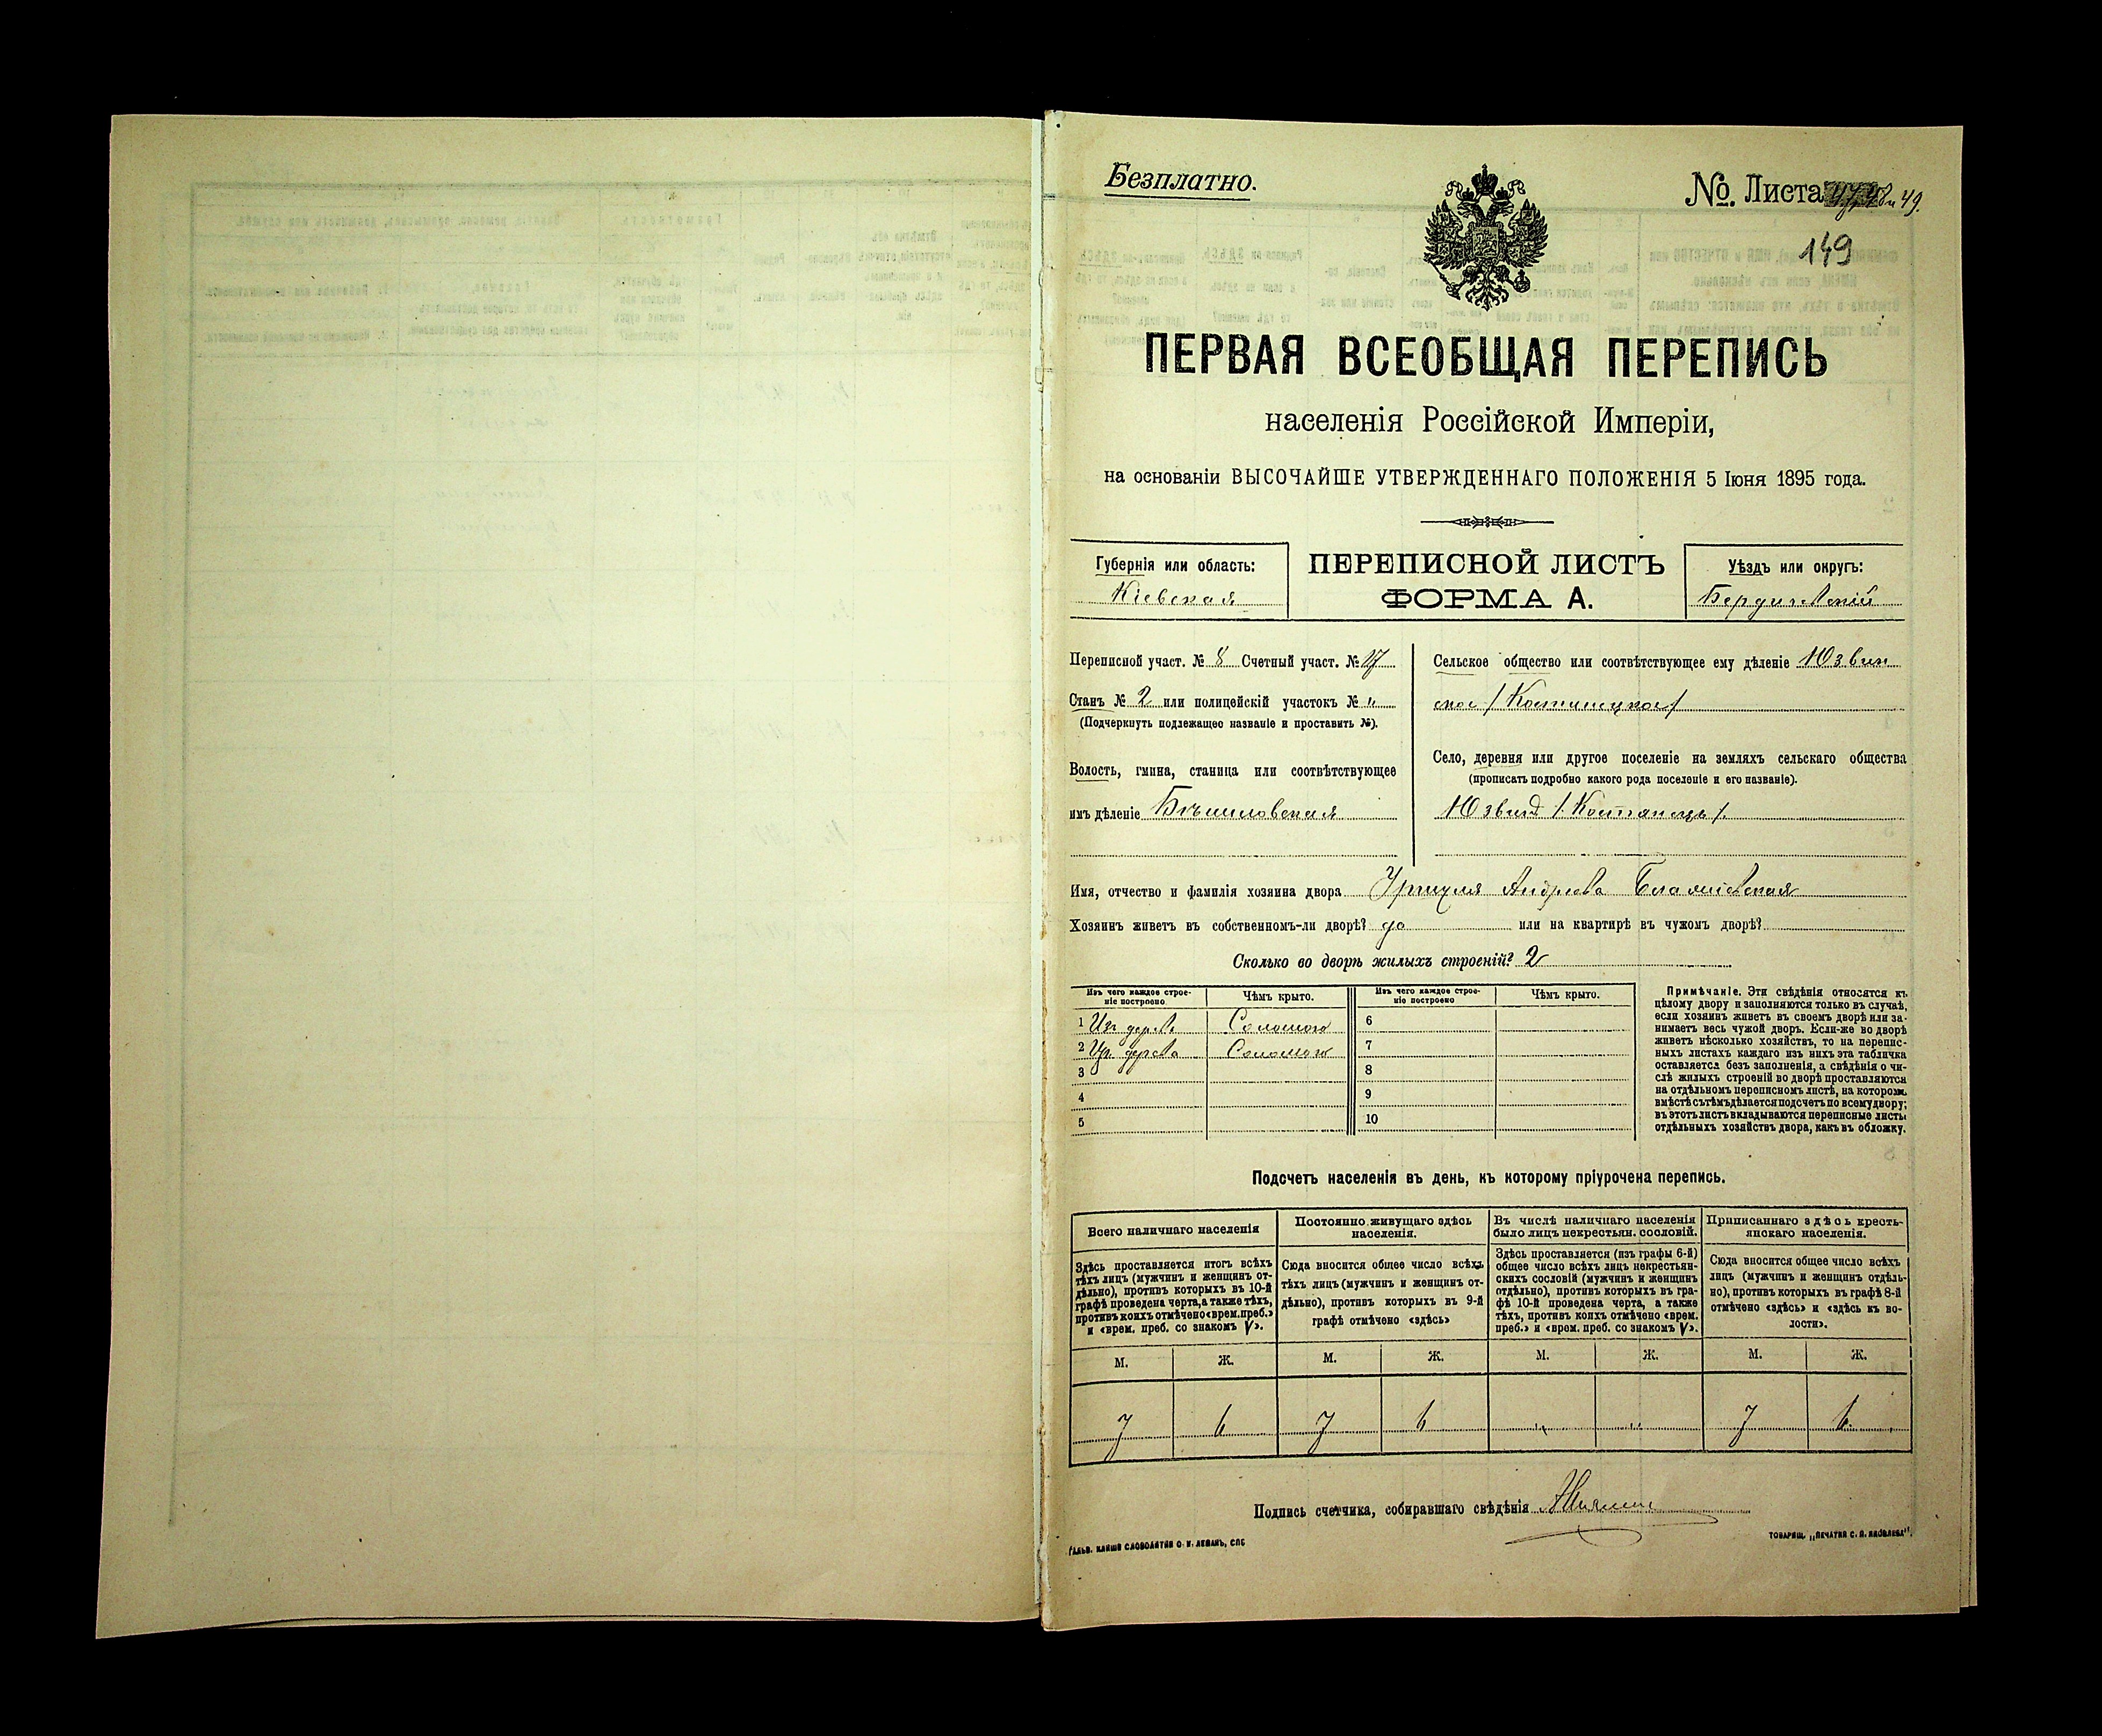 Безплатно.
№. Листа 49.
149
ПЕРВАЯ ВСЕОБЩАЯ ПЕРЕПИСЬ
населенія Россійской Имперіи,
на основаніи ВЫСОЧАЙШЕ УТВЕРЖДЕННАГО ПОЛОЖЕНІЯ 5 Іюня 1895 года.
Губернія или область:
Кіевская
ПЕРЕПИСНОЙ ЛИСТЪ
ФОРМА А.
Уѣздъ или округъ:
Бердичевскій
Переписной участ. № 8 Счетный участ. № 17
Станъ № 2 или полицейскій участокъ № "
(Подчеркнуть подлежащее названіе и проставить №).
Волость, гмина, станица или соотвѣтствующее
имъ дѣленіе Бѣлиловская
Сельское общество или соотвѣтствующее ему дѣленіе Юзвин
ское
Село, деревня или другое поселеніе на земляхъ сельскаго общества
(прописать подробно какого рода поселеніе и его названіе).
Юзвин
Имя, отчество и фамилія хозяина двора Андреева
Хозяинъ живетъ въ собственномъ-ли дворѣ? да или на квартирѣ въ чужомъ дворѣ?
Сколько во дворѣ жилыхъ строеній? 2
Изъ чего каждое строе-
ніе построено
Чѣмъ крыто.
Изъ чего каждое строе-
ніе построено
Чѣмъ крыто.
1 Изъ дерева Соломою 6
2 Изъ дерева Соломою 7
3 8
4 9
5 10
Примѣчаніе. Эти свѣдѣнія относятся къ
цѣлому двору и заполняются только въ случаѣ,
если хозяинъ живетъ въ своемъ дворѣ или за-
нимаетъ весь чужой дворъ. Если-же во дворѣ
живетъ нѣсколько хозяйствъ, то на перепис-
ныхъ листахъ каждаго изъ нихъ эта табличка
оставляется безъ заполненія, а свѣдѣнія о чи-
слѣ жилыхъ строеній во дворѣ проставляются
на отдѣльномъ переписномъ листѣ, на которомъ
вмѣстѣ съ тѣмъ дѣлается подсчетъ по всему двору;
въ этотъ листъ вкладываются переписные листы
отдѣльныхъ хозяйствъ двора, какъ въ обложку.
Подсчетъ населенія въ день, къ которому пріурочена перепись.
Всего наличнаго населенія
Постоянно живущаго здѣсь
населенія.
Въ числѣ наличнаго населенія
было лицъ некрестьян. сословій.
Приписаннаго здѣсь кресть-
янскаго населенія.
Здѣсь проставляется итогъ всѣхъ
тѣхъ лицъ (мужчинъ и женщинъ от-
дѣльно), противъ которыхъ въ 10-й
графѣ проведена черта, а также тѣхъ,
противъ коихъ отмѣчено «врем. преб.»
и «врем. преб. со знакомъ V».
Сюда вносится общее число всѣхъ
тѣхъ лицъ (мужчинъ и женщинъ от-
дѣльно), противъ которыхъ въ 9-й
графѣ отмѣчено «здѣсь»
Здѣсь проставляется (изъ графы 6-й)
общее число всѣхъ лицъ некрестьян-
скихъ сословій (мужчинъ и женщинъ
отдѣльно), противъ которыхъ въ гра-
фѣ 10-й проведена черта, а также
тѣхъ, противъ коихъ отмѣчено «врем.
преб.» и «врем. преб. со знакомъ V».
Сюда вносится общее число всѣхъ
лицъ (мужчинъ и женщинъ отдѣль-
но), противъ которыхъ въ графѣ 8-й
отмѣчено «здѣсь» и «здѣсь къ во-
лости».
М. Ж. М. Ж. М. Ж. М. Ж.
7 6 7 6 " " 7 6
Подпись счетчика, собиравшаго свѣдѣнія
ТОВАРИЩ. „ПЕЧАТНЯ С. П. ЯКОВЛЕВА".